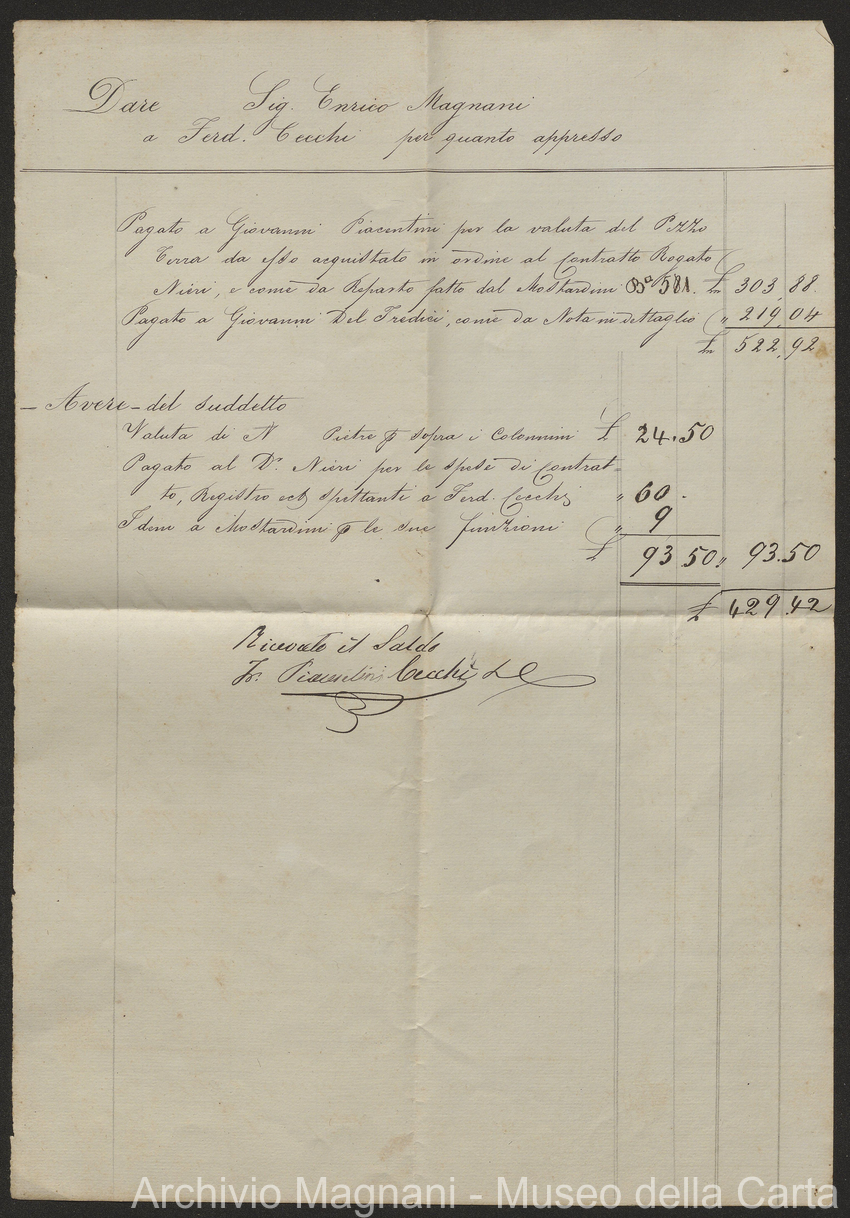 Dare Sig. Enrico Magnani
a Ferd. Cecchi per quanto appresso
Pagato a Giovanni Piacentini per la valuta del Pezzo
Terra da esso acquistato in ordine al Contratto Rogato
Nieri, e come da Reparto fatto dal Mostardini Ba 581. £n 303,88.
Pagato a Giovanni Del Tredici, come da Nota in dettaglio " 219,04
£n 522,92
- Avere - del suddetto
Valuta di N Pietre p sopra i Colonnini £ 24.50
Pagato al Dr. Nieri per le spese di Contrat=
to, Registro ect spettanti a Ferd. Cecchi " 60.
Idem a Mostardini p le sue funzioni " 9
£ 93.50 " 93.50
£ 429.42
Ricevuto il Saldo
Piacentini Cecchi
Archivio Magnani - Museo della Carta